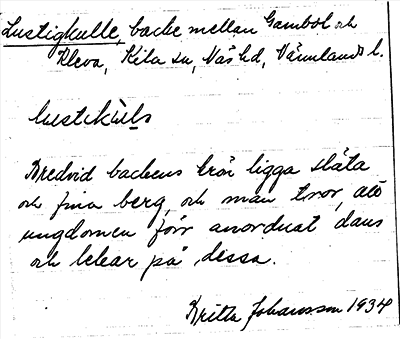 Lustigkulle, backe mellan Gambol och
Kleva, Kila sn, Näs hd, Värmlands l.
lustikùls
Bredvid backens krön ligga släta
och fina berg, och man tror, att
ungdomen förr anordnat dans
och lekar på dessa.
Britta Johansson 1934